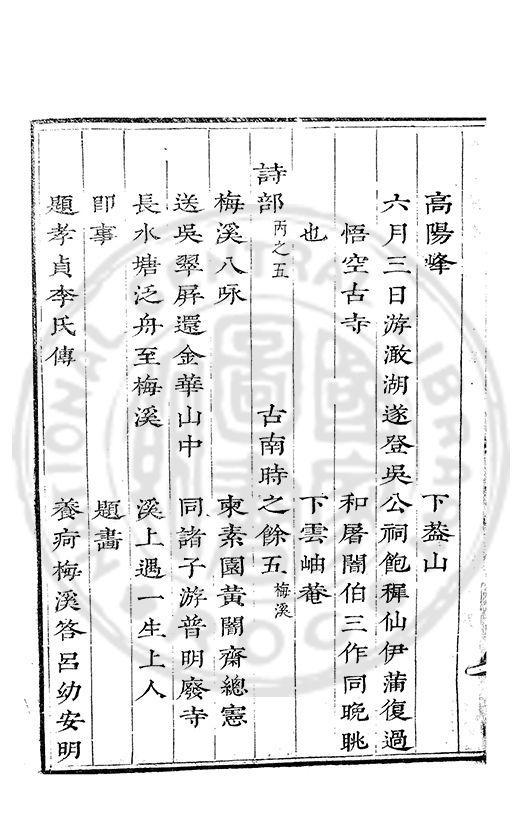 高陽峰　下葢山
六月三日游澉湖遂登吳公祠飽穉仙伊蒲復過
悟空古寺　和屠闇伯三作同晚眺
也　下雲岫菴
詩部丙之五　古南時之餘五梅溪
梅溪八咏　柬素園黄闇齋總憲
送吳翠屏還金華山中　同諸子游普明廢寺
長水塘泛舟至梅溪　溪上遇一生上人
即事　題畵
題孝貞李氏傳　養疴梅溪答呂幼安明